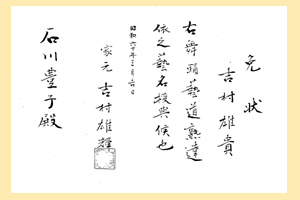 免状
吉村雄貴
右舞踊藝道熟達
依之藝名授與候也
昭和六十年三月六日
家元 吉村雄輝
石川豊子殿